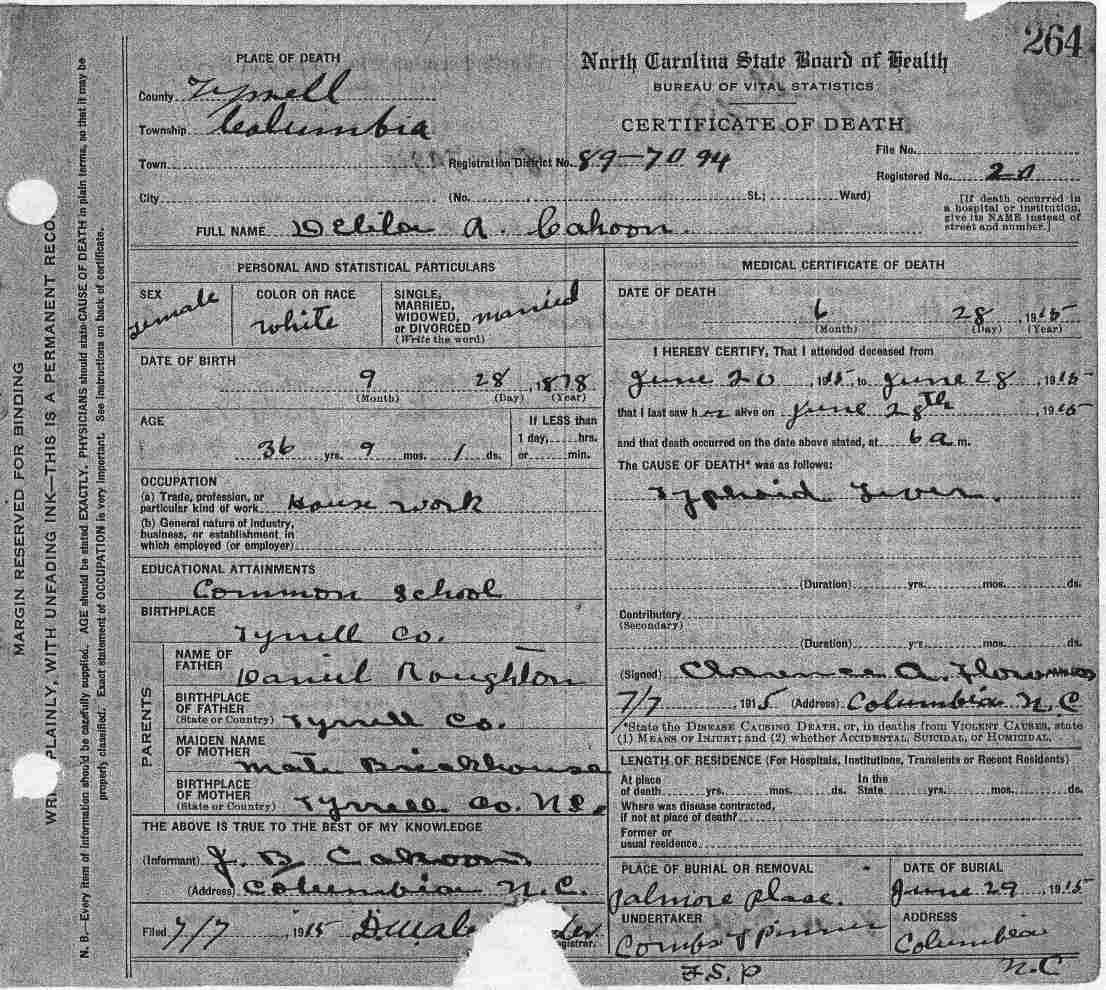 264
PLACE OF DEATH
North Carolina State Board of Health
BUREAU OF VITAL STATISTICS
CERTIFICATE OF DEATH
County Tyrrell
Township Columbia
Town Registration District No. 89-7094
File No.
Registered No. 20
City (No. St.; Ward)
[If death occurred in
a hospital or institution,
give its NAME instead of
street and number.]
FULL NAME Delila A. Cahoon
PERSONAL AND STATISTICAL PARTICULARS
SEX Female
COLOR OR RACE White
SINGLE,
MARRIED,
WIDOWED,
or DIVORCED
(Write the word)
married
DATE OF BIRTH
9 28, 1878
(Month) (Day) (Year)
AGE
36 yrs. 9 mos. 1 ds.
If LESS than
1 day, hrs.
or min.
OCCUPATION
(a) Trade, profession, or
particular kind of work House work
(b) General nature of industry,
business, or establishment in
which employed (or employer)
EDUCATIONAL ATTAINMENTS
Common School
BIRTHPLACE
Tyrrell Co.
PARENTS
NAME OF
FATHER
Daniel Roughton
BIRTHPLACE
OF FATHER
(State or Country) Tyrrell Co.
MAIDEN NAME
OF MOTHER
BIRTHPLACE
OF MOTHER
(State or Country) Tyrrell Co. N.C.
THE ABOVE IS TRUE TO THE BEST OF MY KNOWLEDGE
(Informant) J. B. Cahoon
(Address) Columbia N.C.
Filed 7/7, 1915
MEDICAL CERTIFICATE OF DEATH
DATE OF DEATH
6 28, 1915
(Month) (Day) (Year)
I HEREBY CERTIFY, That I attended deceased from
June 20, 1915, to June 28, 1915
that I last saw her alive on June 28th, 1915
and that death occurred on the date above stated, at 6 a m.
The CAUSE OF DEATH* was as follows:
Typhoid Fever.
(Duration) yrs. mos. ds.
Contributory
(Secondary)
(Duration) yrs. mos. ds.
(Signed) Clarence A. Flowers
7/7 1915 (Address) Columbia N.C
*State the DISEASE CAUSING DEATH, or, in deaths from VIOLENT CAUSES, state
(1) MEANS OF INJURY; and (2) whether ACCIDENTAL, SUICIDAL, or HOMICIDAL.
LENGTH OF RESIDENCE (For Hospitals, Institutions, Transients or Recent Residents)
At place
of death yrs. mos. ds.
In the
State yrs. mos. ds.
Where was disease contracted,
if not at place of death?
Former or
usual residence
PLACE OF BURIAL OR REMOVAL
place.
DATE OF BURIAL
June 29, 1915
UNDERTAKER
Combs & Pinner
ADDRESS
Columbia
N.C
F.S.P
MARGIN RESERVED FOR BINDING
PLAINLY, WITH UNFADING INK—THIS IS A PERMANENT RECO
N. B.—Every item of information should be carefully supplied. AGE should be stated EXACTLY. PHYSICIANS should state CAUSE OF DEATH in plain terms, so that it may be
properly classified. Exact statement of OCCUPATION is very important. See instructions on back of certificate.